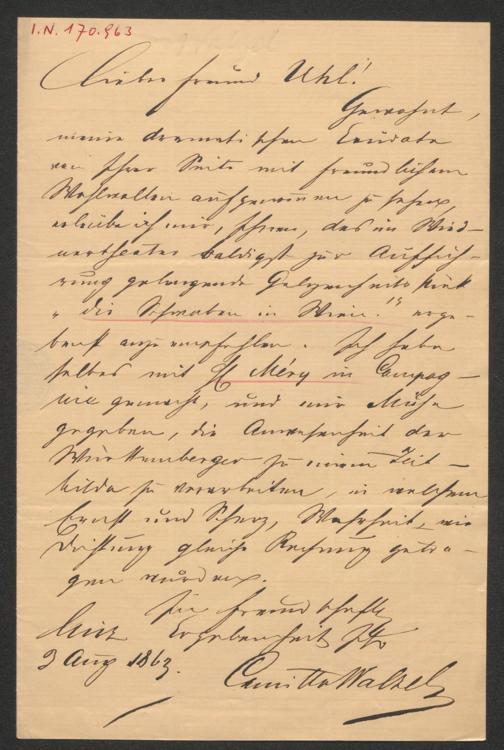 I.N. 170.963
Lieber Freund Uhl!
Gewohnt,
meine dramatischen Exsudate
von Ihrer Seite mit freundlichem
Wohlwollen aufgenommen zu sehen,
erlaube ich mir, Ihnen, das im Wied-
nertheater baldigst zur Auffüh-
rung gelangende Gelegenheitsstück
„die Schwaben in Wien!" erge-
benst anzuempfehlen. Ich habe
selbes mit St Méry in Compag-
nie gemacht, und mir Mühe
gegeben, die Anwesenheit der
Württemberger zu einem Zeit-
bilde zu verarbeiten, in welchem
Ernst und Scherz, Wahrheit, wie
Dichtung gleiche Rechnung getra-
gen wurden.
In Freundschaft
Ergebenheit Ihr
2 Aug 1863.
Camillo Walzel